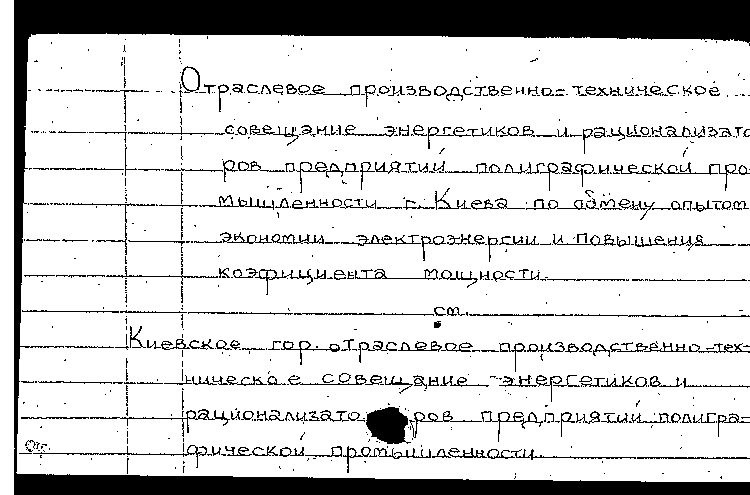 Отраслевое производственно-техническое
совещание энергетиков и рационализато
ров предприятий полиграфической про-
мышленности г. Киева по обмену опытом
экономии электроэнергии и повышения
коэфициента мощности.
см.
Киевское гор. отраслевое производственно-тех-
ническое совещание энергетиков и
рационализаторов предприятий полигра-
фической промышленности.